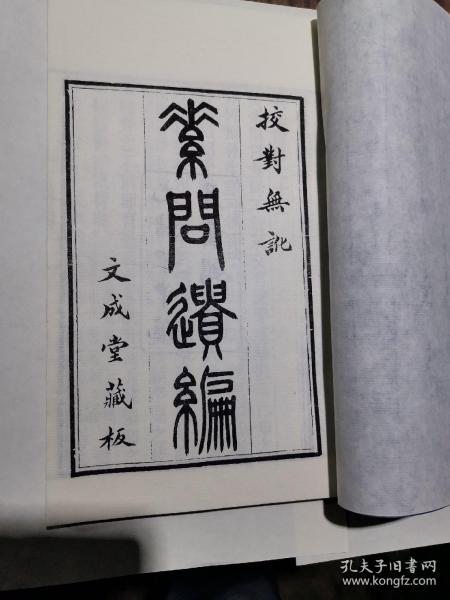 挍對無訛
素問遺編
文成堂藏板
孔夫子旧书网
www.kongfz.com